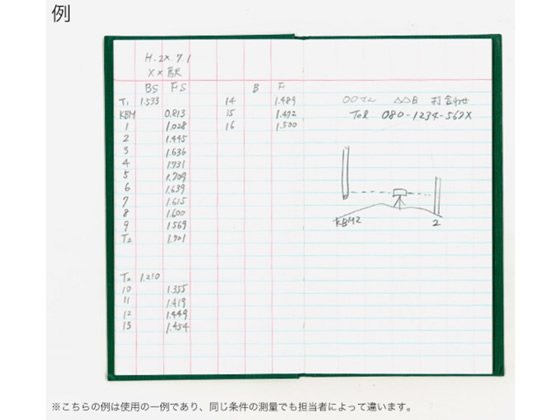 例
H.2x.7.1
××駅
BS FS
T1 1.533
KBM 0.813
1 1.028
2 1.445
3 1.636
4 1.731
5 1.709
6 1.639
7 1.615
8 1.600
9 1.569
T2 1.701
T2 1.210
10 1.335
11 1.419
12 1.449
13 1.454
B F
14 1.489
15 1.492
16 1.500
○○ビル △△日 打合わせ
Tel 080-1234-567X
KBM2
2
※こちらの例は使用の一例であり、同じ条件の測量でも担当者によって違います。